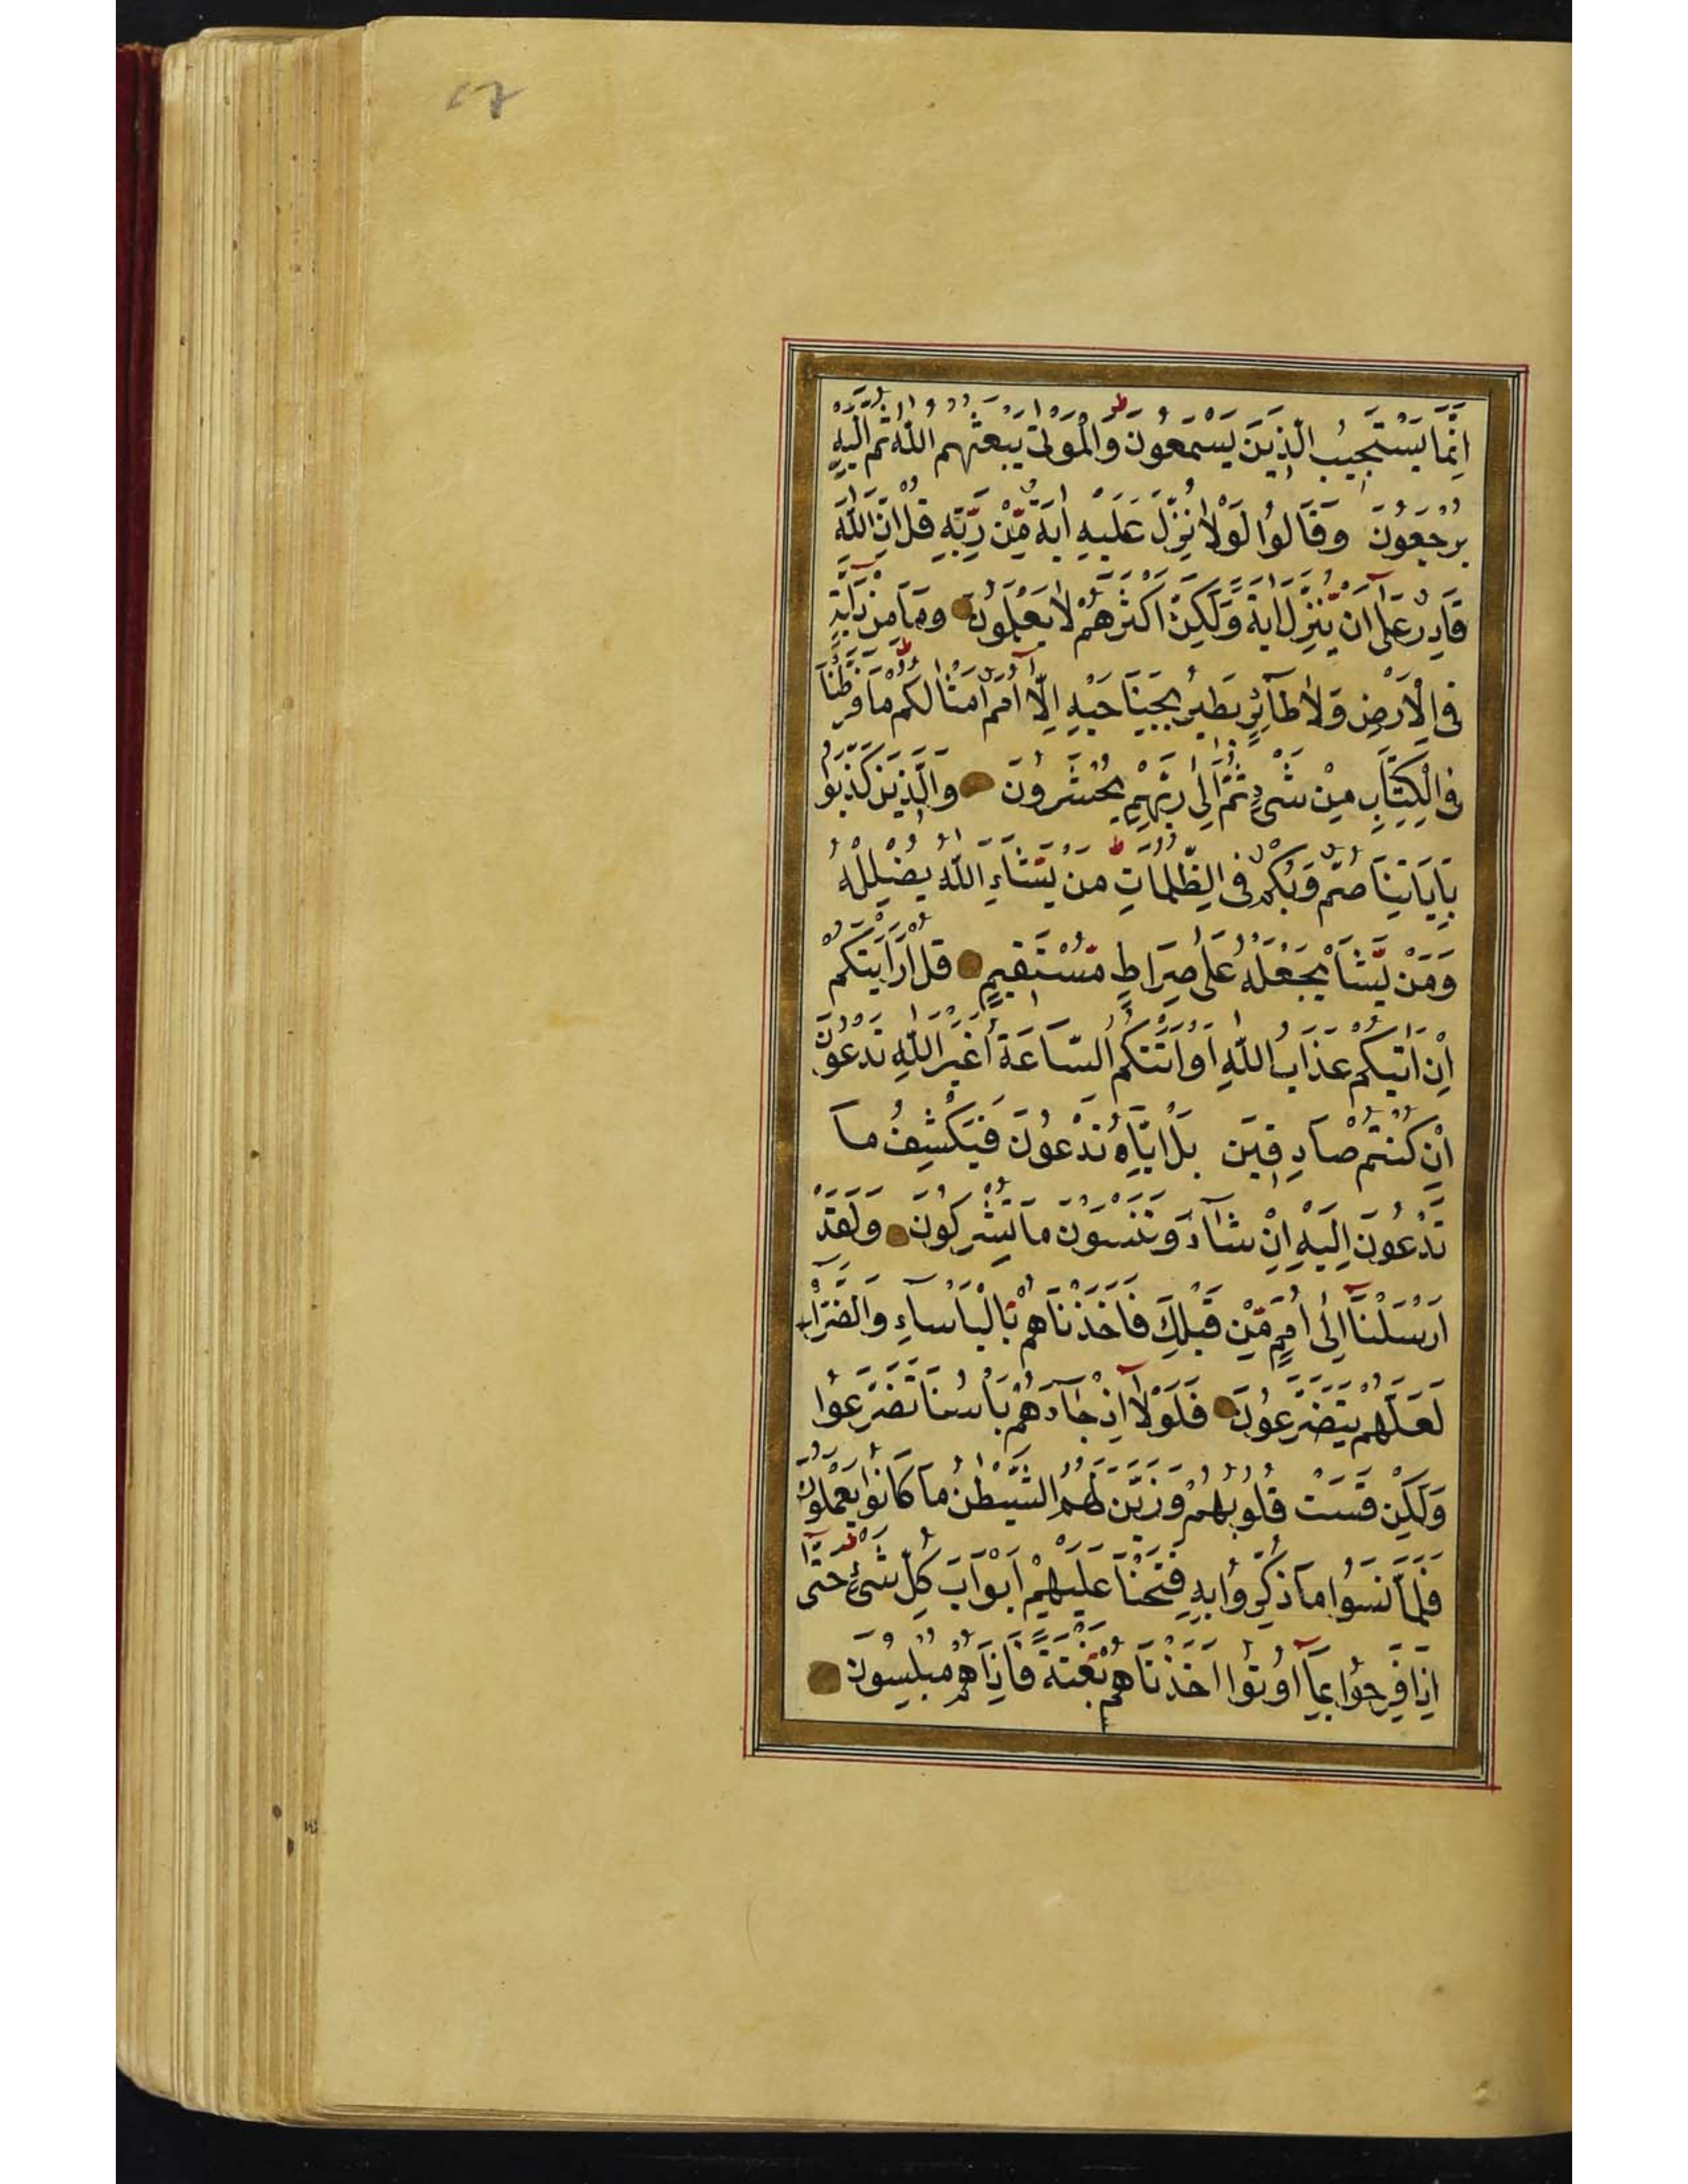 اِنَّمَا يَسْتَجِيبُ الَّذِينَ يَسْمَعُونَ وَالْمَوْتٰى يَبْعَثُهُمُ اللّٰهُ ثُمَّ اِلَيْهِ
يُرْجَعُونَ وَقَالُوا لَوْلَا نُزِّلَ عَلَيْهِ اٰيَةٌ مِّنْ رَبِّهِ قُلْ اِنَّ اللّٰهَ
قَادِرٌ عَلٰٓى اَنْ يُّنَزِّلَ اٰيَةً وَّلٰكِنَّ اَكْثَرَهُمْ لَا يَعْلَمُونَ وَمَا مِنْ دَٓابَّةٍ
فِى الْاَرْضِ وَلَا طَٓائِرٍ يَطِيرُ بِجَنَاحَيْهِ اِلَّٓا اُمَمٌ اَمْثَالُكُمْ مَا فَرَّطْنَا
فِى الْكِتَابِ مِنْ شَىْءٍ ثُمَّ اِلٰى رَبِّهِمْ يُحْشَرُونَ وَالَّذِينَ كَذَّبُوا
بِاٰيَاتِنَا صُمٌّ وَّبُكْمٌ فِى الظُّلُمَاتِ مَنْ يَّشَاِ اللّٰهُ يُضْلِلْهُ
وَمَنْ يَّشَأْ يَجْعَلْهُ عَلٰى صِرَاطٍ مُّسْتَقِيمٍ قُلْ اَرَاَيْتَكُمْ
اِنْ اَتٰيكُمْ عَذَابُ اللّٰهِ اَوْ اَتَتْكُمُ السَّاعَةُ اَغَيْرَ اللّٰهِ تَدْعُونَ
اِنْ كُنْتُمْ صَادِقِينَ بَلْ اِيَّاهُ تَدْعُونَ فَيَكْشِفُ مَا
تَدْعُونَ اِلَيْهِ اِنْ شَٓاءَ وَتَنْسَوْنَ مَا تُشْرِكُونَ وَلَقَدْ
اَرْسَلْنَٓا اِلٰٓى اُمَمٍ مِّنْ قَبْلِكَ فَاَخَذْنَاهُمْ بِالْبَأْسَاءِ وَالضَّرَّاءِ
لَعَلَّهُمْ يَتَضَرَّعُونَ فَلَوْلَٓا اِذْ جَٓاءَهُمْ بَأْسُنَا تَضَرَّعُوا
وَلٰكِنْ قَسَتْ قُلُوبُهُمْ وَزَيَّنَ لَهُمُ الشَّيْطٰنُ مَا كَانُوا يَعْمَلُونَ
فَلَمَّا نَسُوا مَا ذُكِّرُوا بِهِ فَتَحْنَا عَلَيْهِمْ اَبْوَابَ كُلِّ شَىْءٍ حَتّٰٓى
اِذَا فَرِحُوا بِمَٓا اُوتُوا اَخَذْنَاهُمْ بَغْتَةً فَاِذَا هُمْ مُبْلِسُونَ